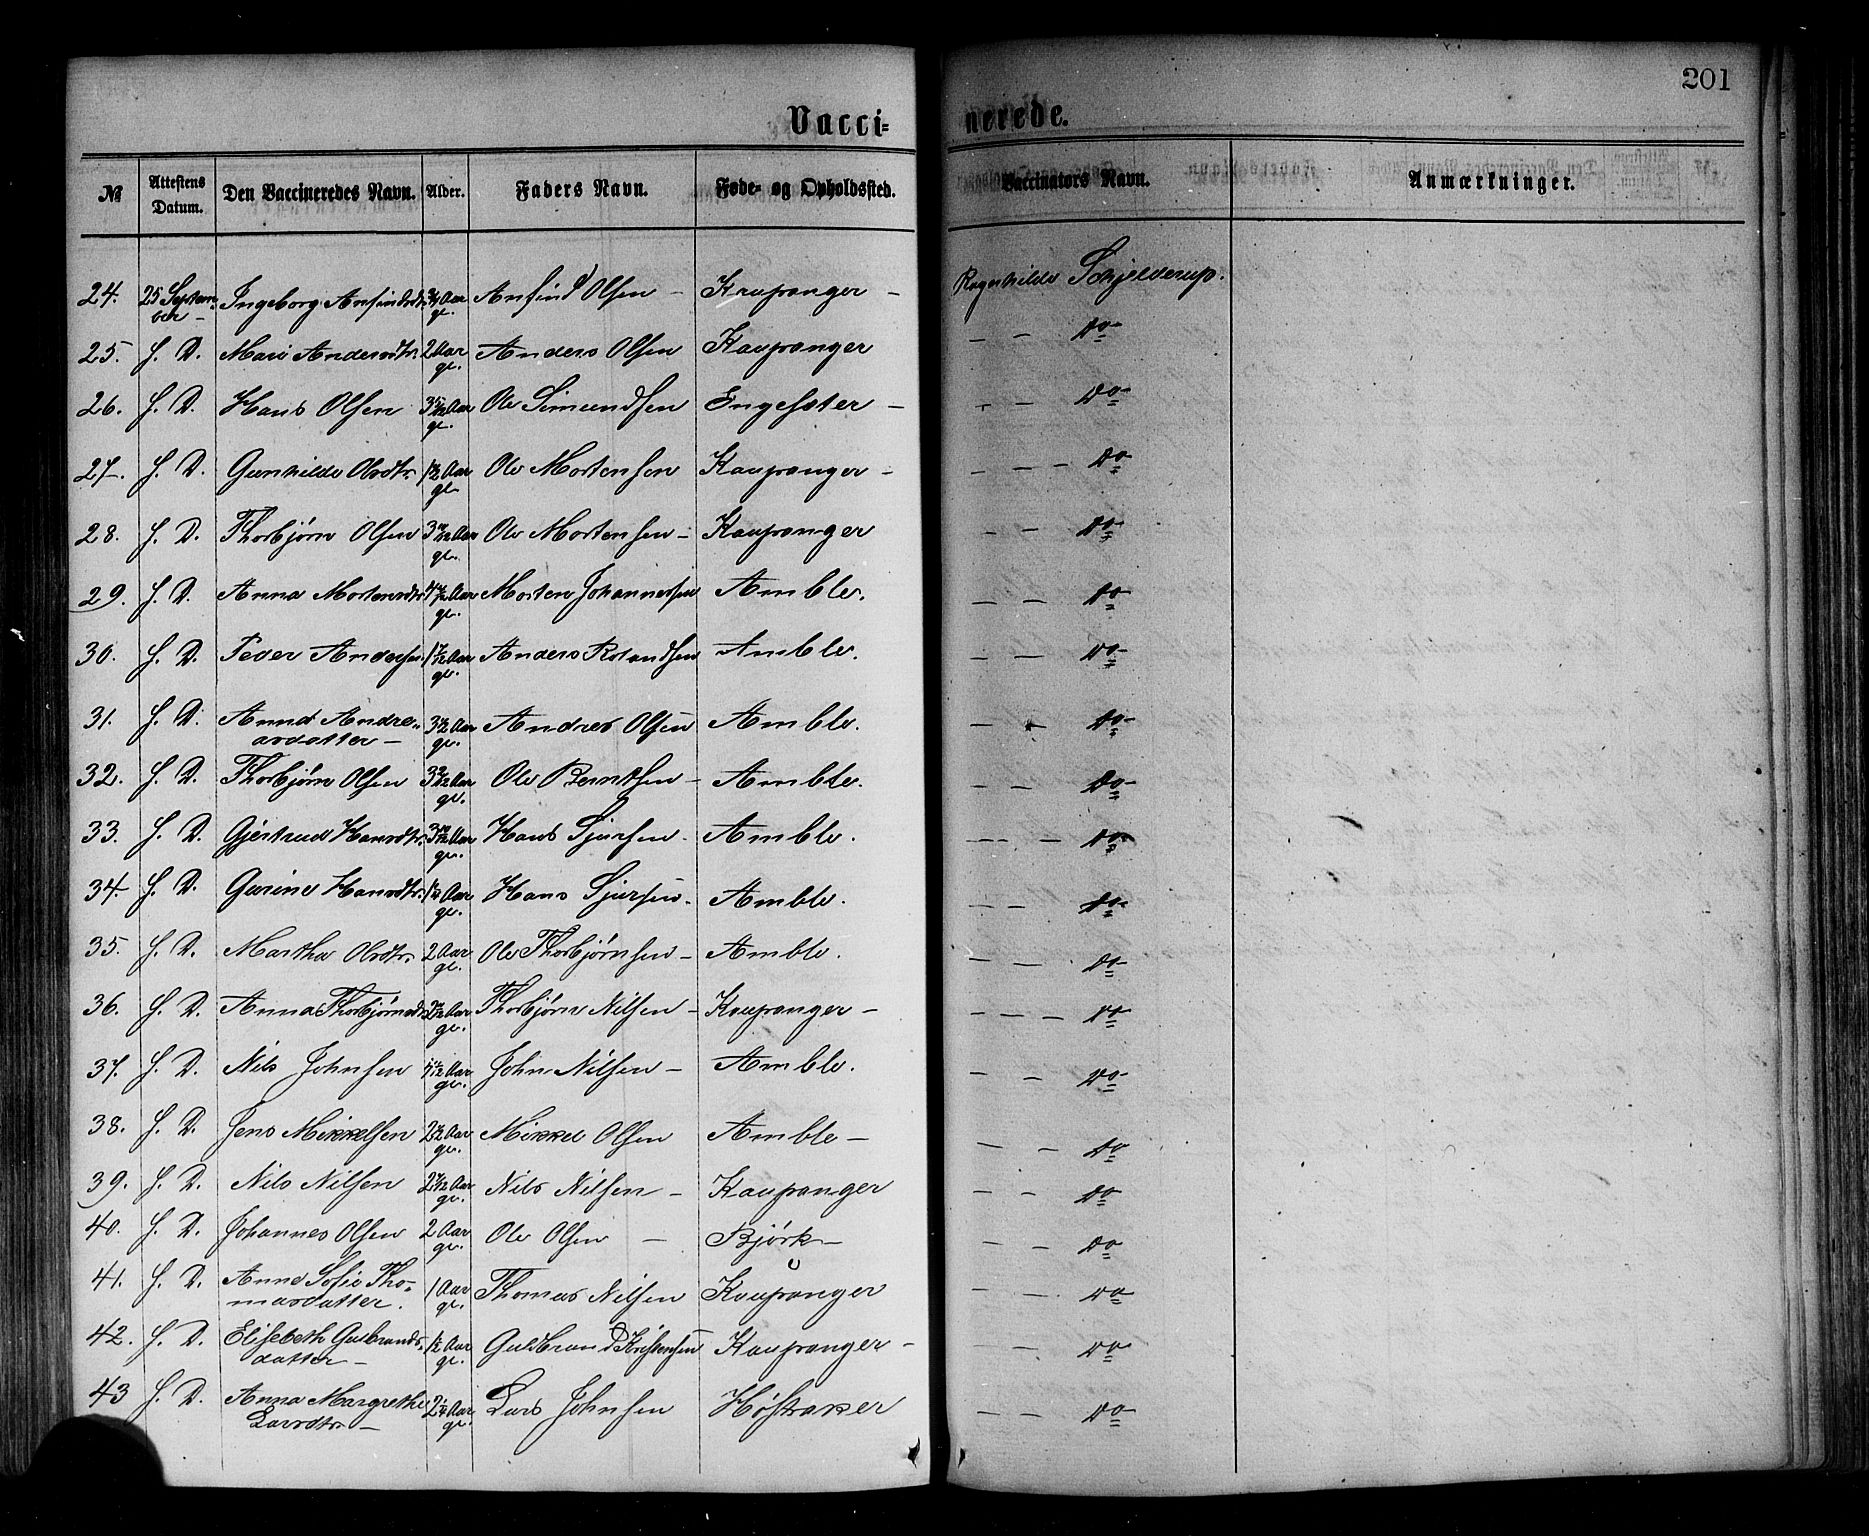 201
Vacci=
nerede.
№ Attestens Datum. Den Vaccineredes Navn. Alder. Faders Navn. Føde- og Opholdssted. Vaccinators Navn. Anmærkninger.
24. 25 Septem- Ingeborg Anfindsdtr. Aar Anfind Olsen – Kaupanger – Ragnhilde Schjelderup.
ber – gl.
25. S. D. Mari Andersdtr. 2 Aar Anders Olsen Kaupanger – – Do
gl.
26. S. D. Hans Olsen Aar Ole Simundsen Engesæter – – – Do
gl.
27. S. D. Gunhilde Olsdtr. Aar Ole Mortensen Kaupanger – – – – Do
gl.
28. S. D. Thorbjørn Olsen Aar Ole Mortensen – Kaupanger – – Do
gl.
29. S. D. Anna Mortensdtr. Aar Morten Johannessen Amble. – – Do
gl.
30. S. D. Peder Andersen Aar Anders Rolandsen Amble. – – Do
gl.
31. S. D. Anna Andre- Aar Andres Olsen Amble. – – Do
asdatter – gl.
32. S. D. Thorbjørn Olsen Aar Ole Berntsen – Amble. – – Do
gl.
33. S. D. Gjertrud Hansdtr. Aar Hans Sjursen – Amble. – – Do
gl.
34. S. D. Gurine Hansdtr. Aar Hans Sjursen. Amble. – – Do
gl.
35. S. D. Martha Olsdtr. 2 Aar Ole Thorbjørnsen – Amble. – – Do
gl.
36. S. D. Anna Thorbjørnsdtr. Aar Thorbjørn Nilsen – Kaupanger – – – – Do
gl.
37. S. D. Nils Johnsen Aar John Nilsen – Amble. – – Do
gl.
38. S. D. Jens Mikkelsen Aar Mikkel Olsen Amble – – – Do
gl.
39. S. D. Nils Nilsen Aar Nils Nilsen – Kaupanger – – Do
gl.
40. S. D. Johannes Olsen 2 Aar Ole Olsen – Bjørk – – – Do
gl.
41. S. D. Anna Sofie Tho- 1 Aar Thomas Nilsen Kaupanger – – Do
masdatter. gl.
42. S. D. Elisebeth Gulbrands- Aar Guldbrand Kristensen Kaupanger – – – Do
datter – gl.
43 S. D. Anna Margrethe Aar Lars Johnsen Høstaker – – Do
Larsdtr. – gl.